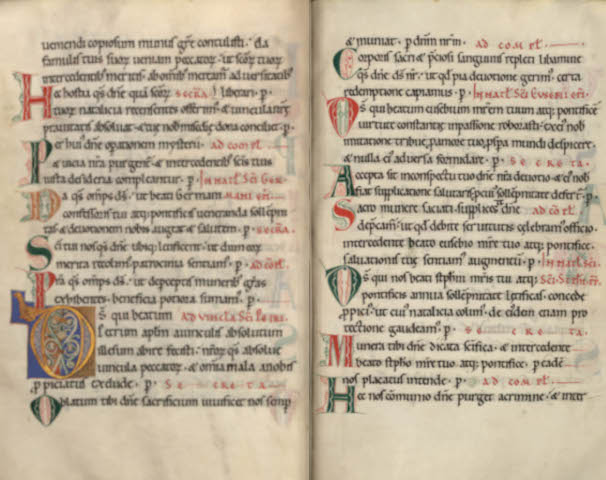 uemendi copiosum munus gr̄e contulisti. da
famulis tuis suor̄ ueniam peccator̄. ut scōr̄ tuor̄
intercedentib; meritis. ab omnib; mereant̄ aduersitatib;
Hec hostia qs dn̄e quā scōr̄ SECRETA liberari. p.
tuor̄ natalicia recensentes offerim̄. & uincula nr̄ę
prauitatis absoluat. & tuę nob̄ misc̄dię dona conciliet. p.
Per hui dn̄e operationem mysterii. AD COMPL̄.
& uicia nr̄a purgent̄. & intercedentib; scīs tuis
iusta desideria compleantur. p. IN NATL̄ SC̄I GER
Da qs omp̄s ds̄. ut beati Germani MANI EP̄I.
confessoris tui atq; pontificis ueneranda sollēpni
tas. & deuotionem nobis augeat & salutem. p. SECRETA.
Scī tui nos qs dn̄e ubiq; lętificent. ut dum eor̄
merita recolim̄. patrocinia sentiam̄. p. AD COMPL̄.
Pręsta qs omp̄s ds̄. ut de pceptis muneribus gr̄as
exhibentes. beneficia potiora sumam̄. p.
Ds̄ qui beatum AD VINCULA SC̄I PETRI
petrum ap̄lm a uinculis absolutum
illesum abire fecisti. nr̄or̄ qs absolue
uincula peccator̄. & omnia mala a nobis
p̄piciatus exclude. p. SECRETA
Oblatum tibi dn̄e sacrificium uiuificet nos semp̄
& muniat. p. dn̄m nr̄m. AD COMPL̄.
Corporis sacri & p̄ciosi sanguinis repleti libamine
qs dn̄e ds̄ nr̄. ut qd̄ pia deuotione gerim̄. certa
redemptione capiamus. p. IN NATL̄ SC̄I EUSEBII EP̄I.
Ds̄ qui beatum eusebium mr̄em tuum atq; pontificē
uirtute constantię in passione roborasti. ex ei nob̄
imitatione tribue. p amore tuo p̄spa mundi despicere.
& nulla ei aduersa formidare. p. SECRETA.
Accepta sit in conspectu tuo dn̄e nr̄a deuotio. & ei nob̄
fiat supplicatione salutaris. p cui sollēpnitate defert̄. p.
Sacro munere saciati. supplices te dn̄e AD COMPL̄
depcam̄. ut qd̄ debitę seruitutis celebram̄ officio.
intercedente beato eusebio mr̄e tuo atq; pontifice.
saluationis tuę sentiam̄ augmentū. p. IN NATL̄ SC̄I
Ds̄ qui nos beati stephani mr̄is tui atq; SC̄I STEPH̄ EP̄I.
pontificis annua sollēpnitate lętificas. concede
p̄pici. ut cui natalicia colim̄. de eiusdem etiam pro
tectione gaudeam̄. p. SECRETA.
Munera tibi dn̄e dicata scifica. & intercedente
beato stph̄o mr̄e tuo atq; pontifice. p eadē
nos placatus intende. p. AD COMPL̄.
Hec nos c̄munio dn̄e purget a crimine. & inter